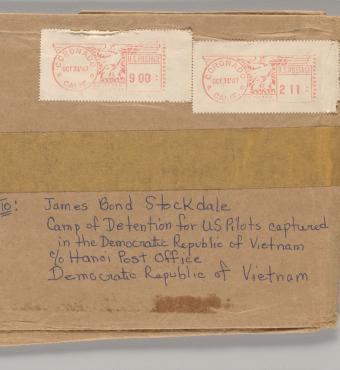 CORONADO
OCT 31 '67
CALIF.
U.S. POSTAGE
9 00
CORONADO
OCT 31 '67
CALIF.
U.S. POSTAGE
2 11
To: James Bond Stockdale
Camp of Detention for US Pilots captured
in the Democratic Republic of Vietnam
c/o Hanoi Post Office
Democratic Republic of Vietnam